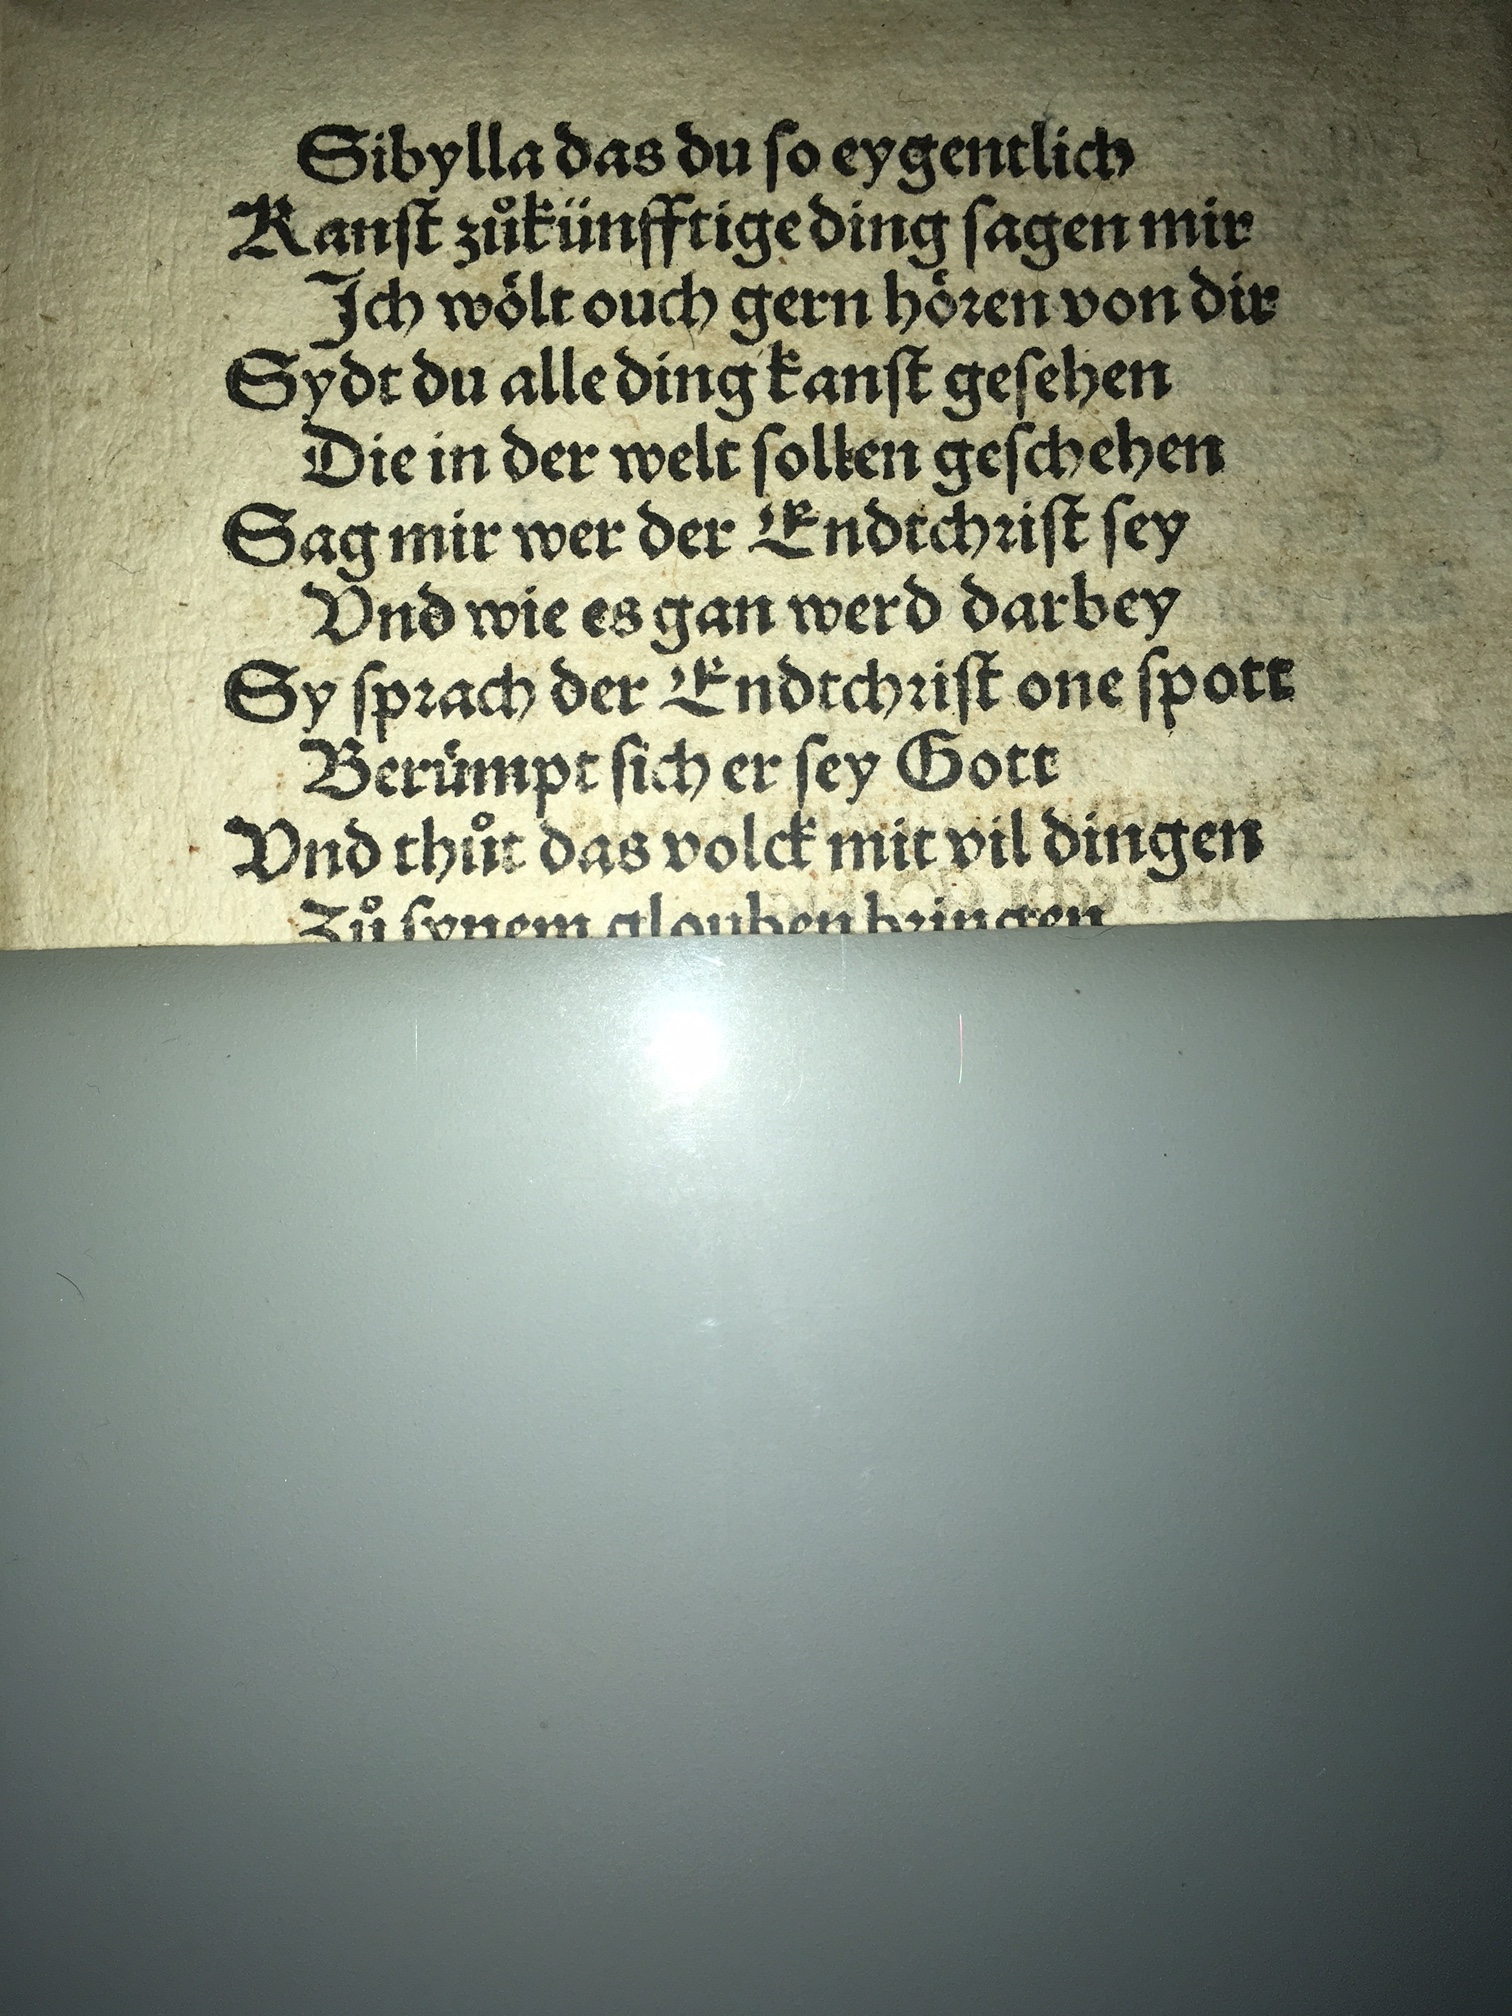 Sibylla das du ſo eygentlich
Kanſt zuͦkünfftige ding ſagen mir
Ich woͤlt ouch gern hoͤren von dir
Sydt du alle ding kanſt geſehen
Die in der welt ſollen geſchehen
Sag mir wer der Endtchriſt ſey
Vnd wie es gan werd darbey
Sy ſprach der Endtchriſt one ſpott
Beruͤmpt ſich er ſey Gott
Vnd thuͦt das volck mit vil dingen
Zuͦ ſynem glouben bringen